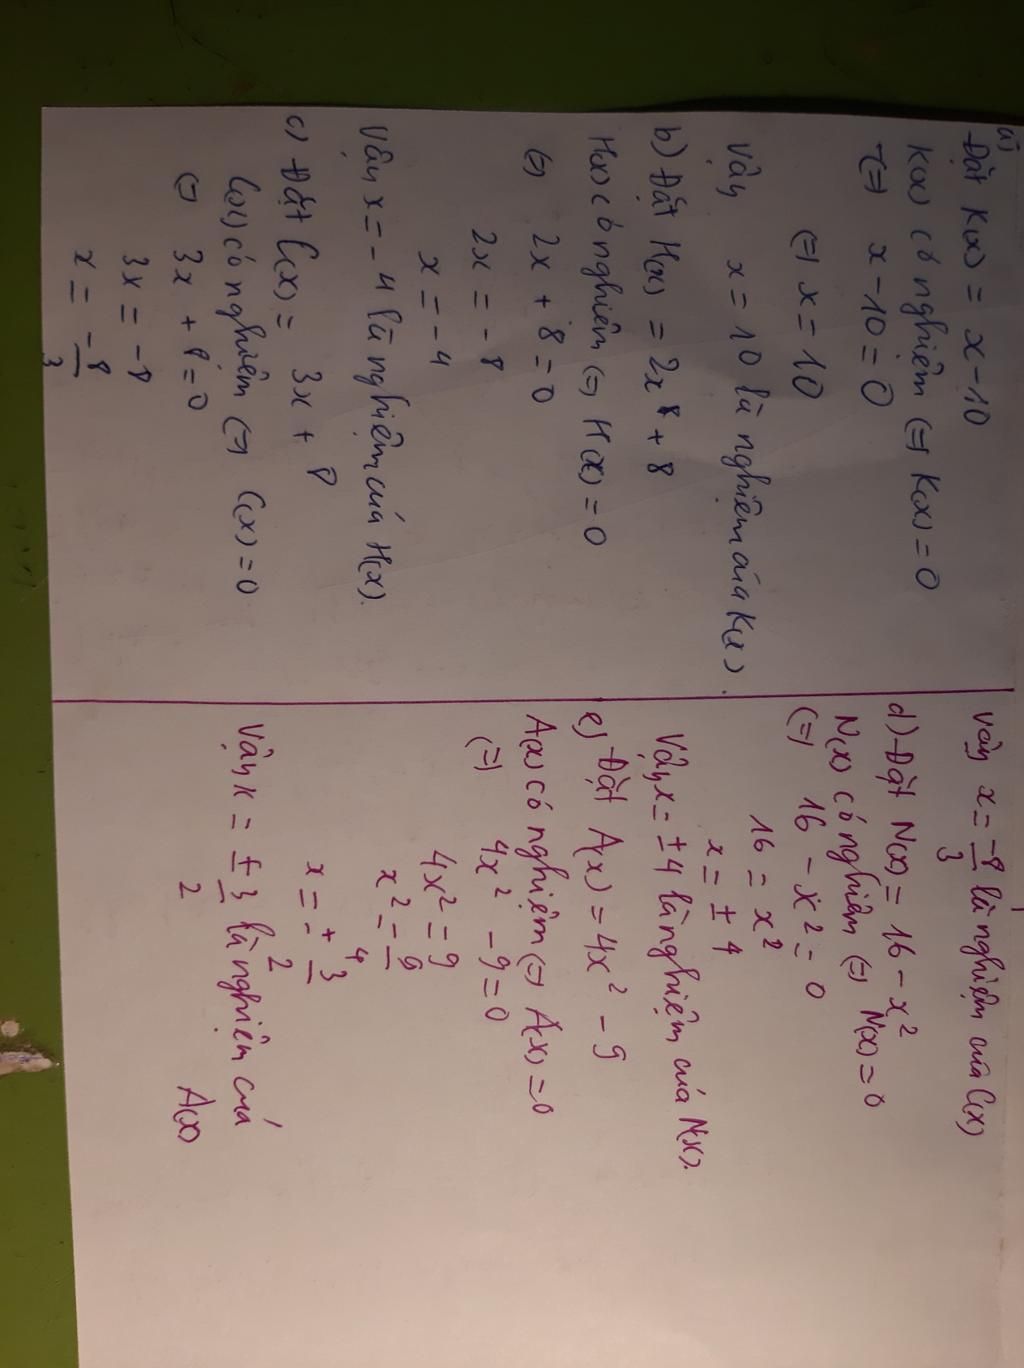 a)
Đặt K(x) = x - 10
K(x) có nghiệm (=) K(x) = 0
(=) x - 10 = 0
(=) x = 10
Vậy x = 10 là nghiệm của K(x).
b) Đặt H(x) = 2x + 8
H(x) có nghiệm (=) H(x) = 0
(=) 2x + 8 = 0
2x = -8
x = -4
Vậy x = -4 là nghiệm của H(x).
c) Đặt C(x) = 3x + 8
C(x) có nghiệm (=) C(x) = 0
(=) 3x + 8 = 0
3x = -8
x = -8/3
Vậy x = -8/3 là nghiệm của C(x)
d) Đặt N(x) = 16 - x²
N(x) có nghiệm (=) N(x) = 0
(=) 16 - x² = 0
16 = x²
x = ± 4
Vậy x = ± 4 là nghiệm của N(x).
e) Đặt A(x) = 4x² - 9
A(x) có nghiệm (=) A(x) = 0
(=) 4x² - 9 = 0
4x² = 9
x² = 9/4
x = ± 3/2
Vậy x = ± 3/2 là nghiệm của
A(x)